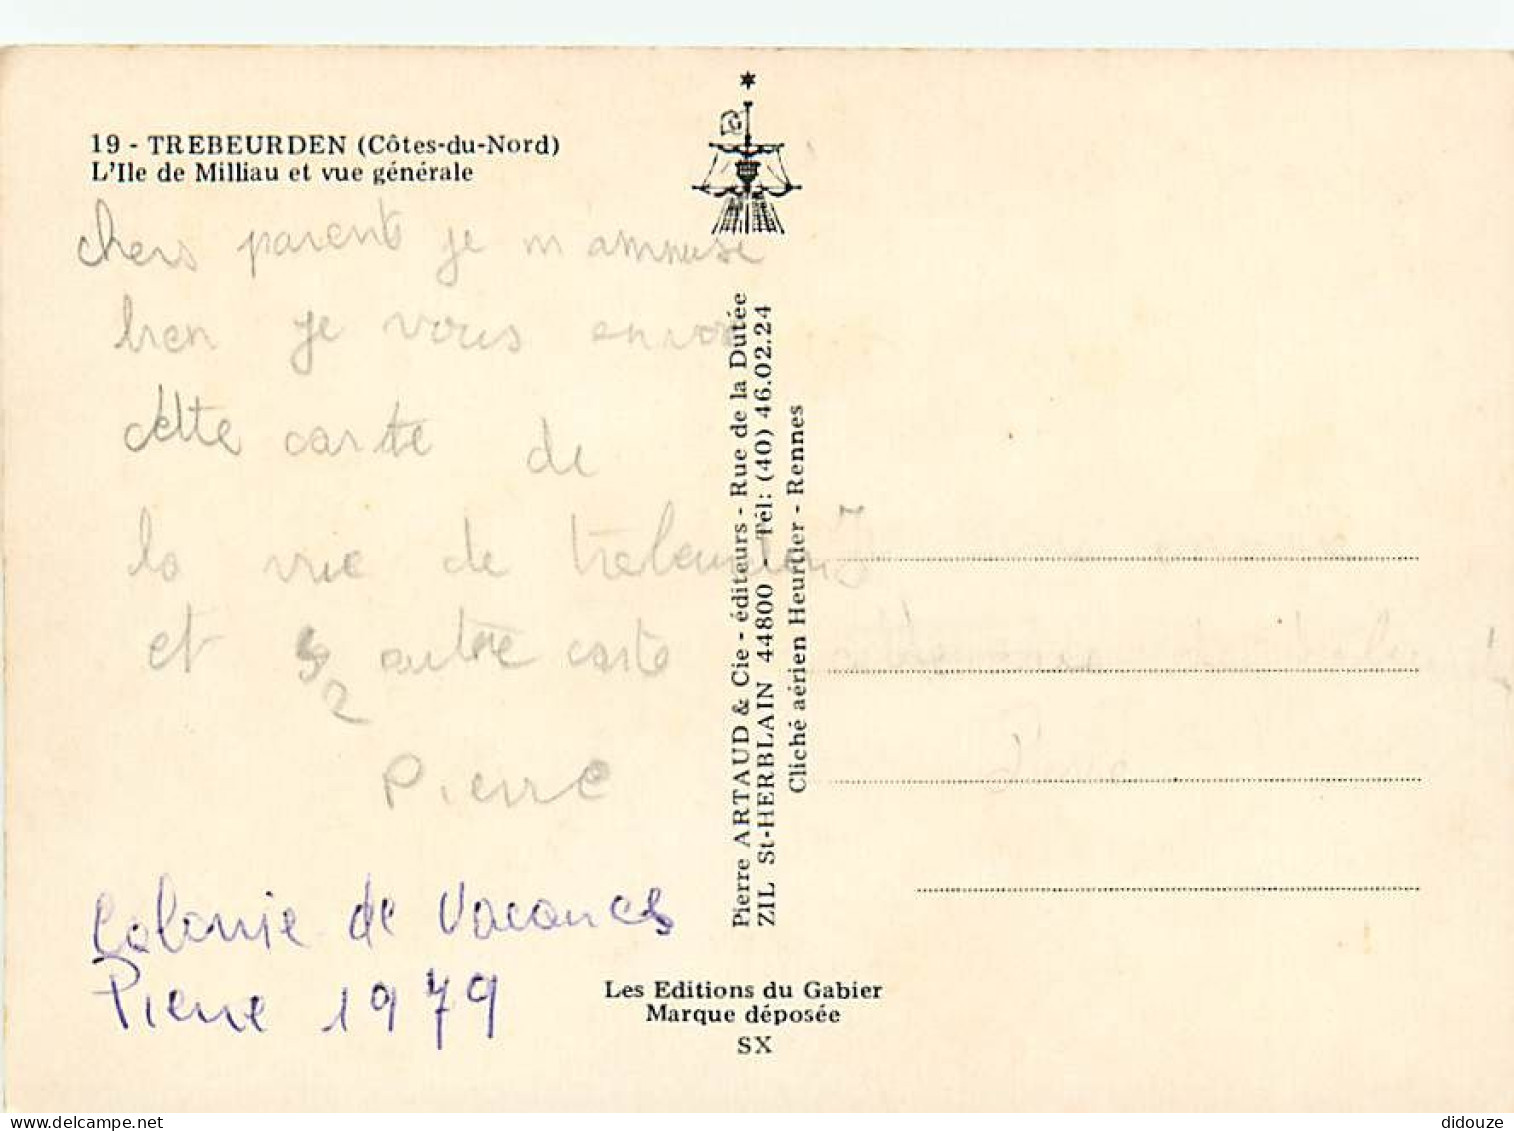 19 - TREBEURDEN (Côtes-du-Nord)
L'Ile de Milliau et vue générale
chers parents je m amuse
bien je vous envoi
cette carte de
la vue de trebeurden
et 2 autre carte
Pierre
Colonie de Vacances
Pierre 1979
Pierre ARTAUD & Cie - éditeurs - Rue de la Dutée
ZIL St-HERBLAIN 44800 - Tél: (40) 46.02.24
Cliché aérien Heurtier - Rennes
Les Editions du Gabier
Marque déposée
SX
didouze